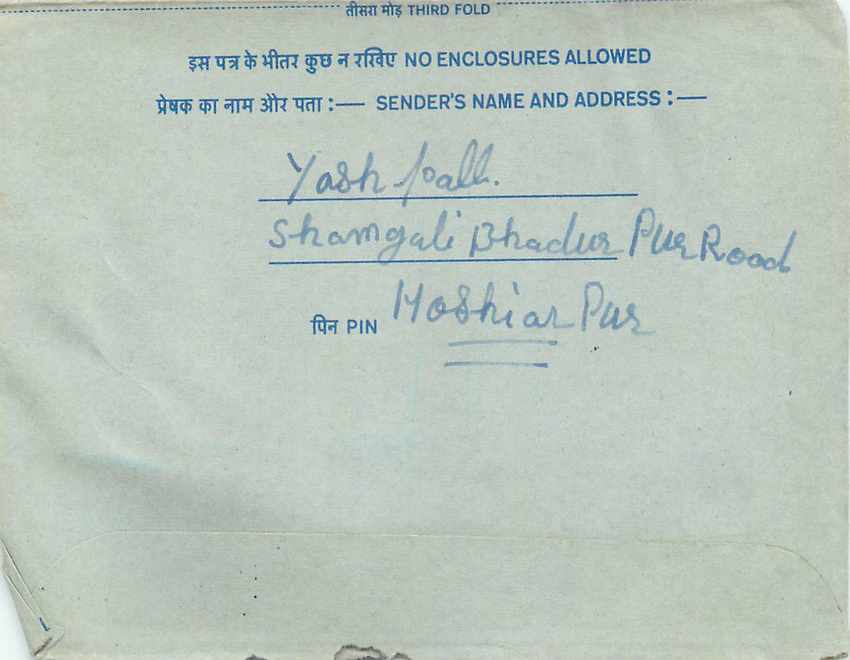 तीसरा मोड़ THIRD FOLD
इस पत्र के भीतर कुछ न रखिए NO ENCLOSURES ALLOWED
प्रेषक का नाम और पता :— SENDER'S NAME AND ADDRESS :—
Yash pall.
Shamgali Bhadur Pur Road
पिन PIN Hoshiar Pur